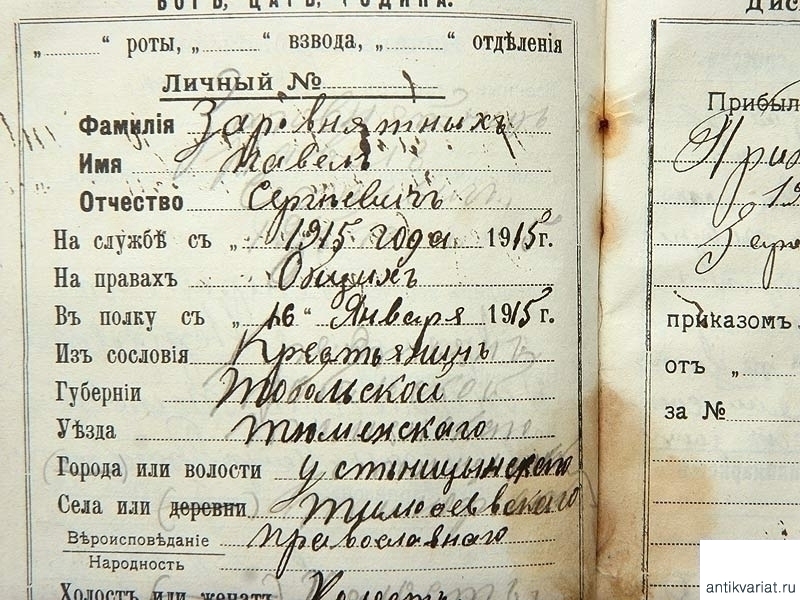 БОГЪ, ЦАРЬ, РОДИНА.
„ “ роты, „ “ взвода, „ “ отдѣленія
Личный №
Фамилія Заровнятныхъ
Имя Павелъ
Отчество Сергѣевичъ
На службѣ съ „ 1915 года 1915 г.
На правахъ Общихъ
Въ полку съ „ 16 “ Января 1915 г.
Изъ сословія Крестьянинъ
Губерніи Тобольской
Уѣзда Тюменскаго
Города или волости
Села или деревни
Вѣроисповѣданіе Православнаго
Народность
Холостъ или женатъ Холостъ
Дис
Прибыл
19
приказомъ
отъ „
за №
antikvariat.ru